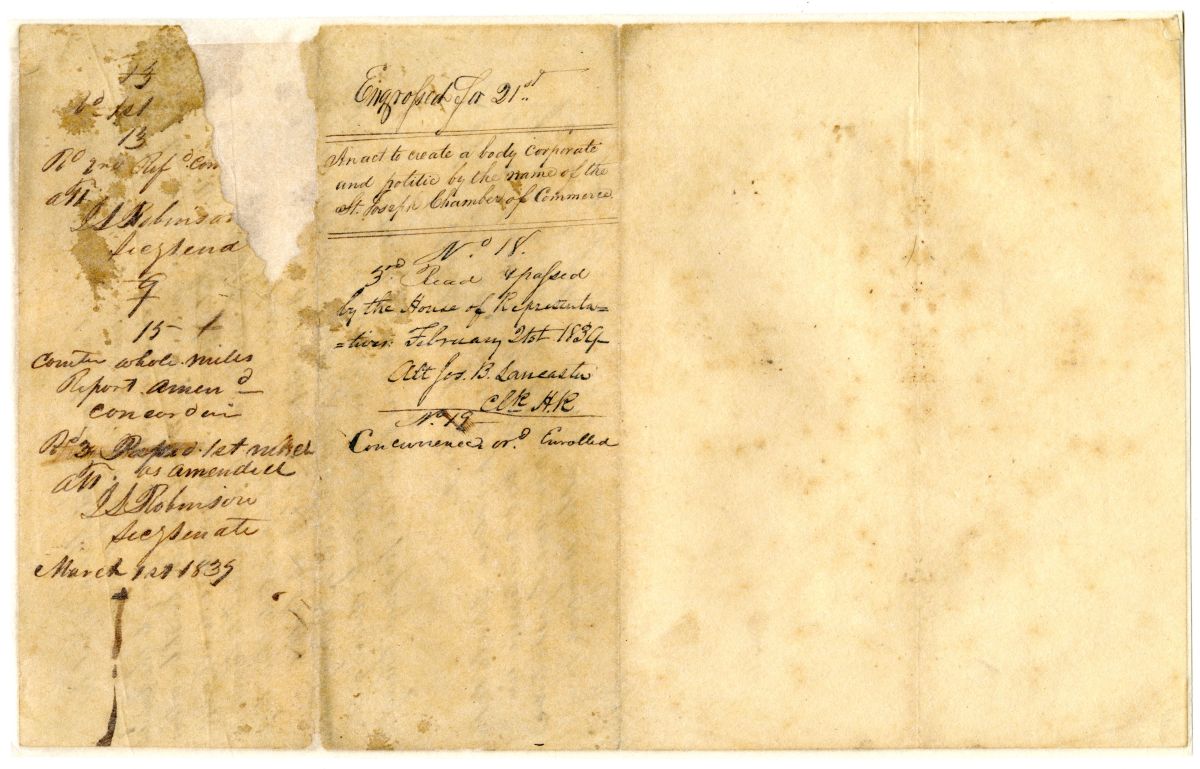 13
Rd 1st
13
Rd 2nd Refd Com
att.
J S Robinson
Secy Senate
9
15
Comtee whole
Report amend
concord in
Rd 3d 1st
att. as amended
J S Robinson
Secy Senate
March 1st 1839
Engrossed for 21st
An act to create a body corporate
and politic by the name of the
St. Joseph Chamber of Commerce
No 18.
3rd Read & passed
by the House of Representa=
=tives February 21st 1839
Att Jos. B. Lancaster
Clk H. R
No 19
Concurrence ord Enrolled